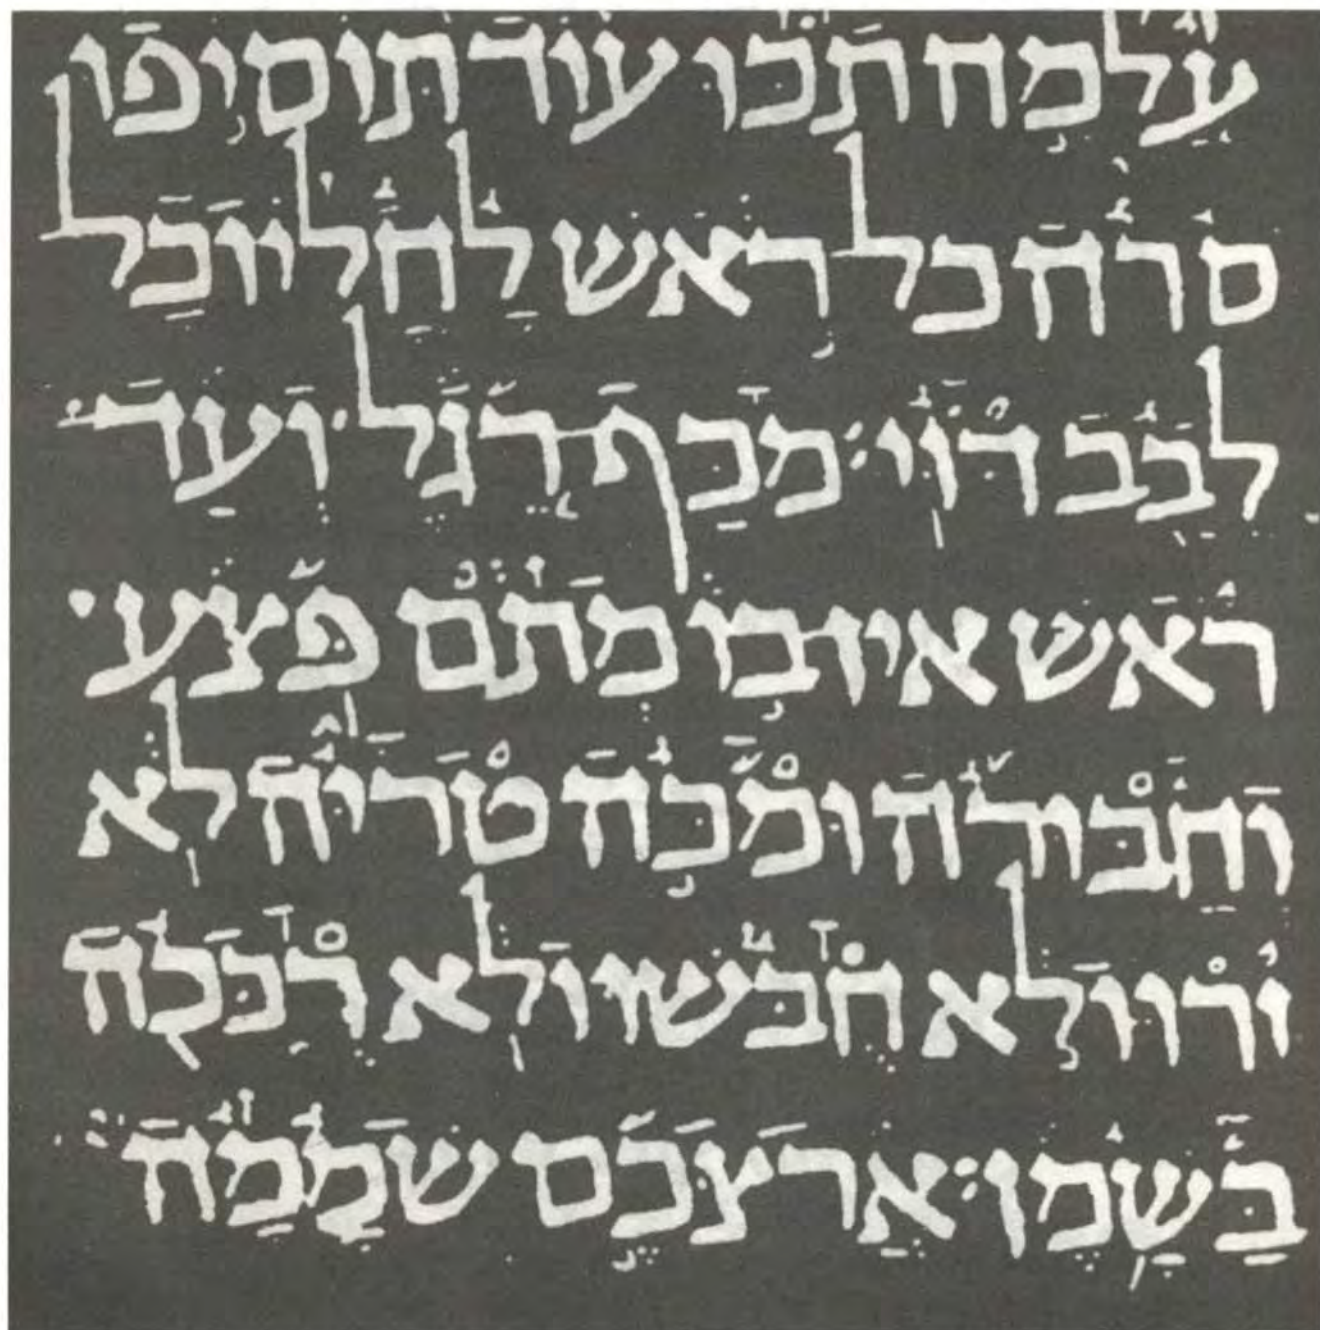 על מה תכו עוד תוסיפו
סרה כל ראש לחלי וכל
לבב דוי׃ מכף רגל ועד
ראש אין בו מתם פצע
וחבורה ומכה טריה לא
זרו ולא חבשו ולא רככה
בשמן׃ ארצכם שממה